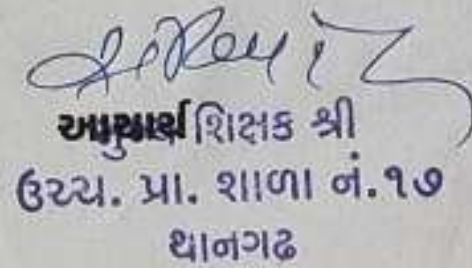 આચાર્ય શિક્ષક શ્રી
ઉચ્ચ. પ્રા. શાળા નં.૧૭
થાનગઢ